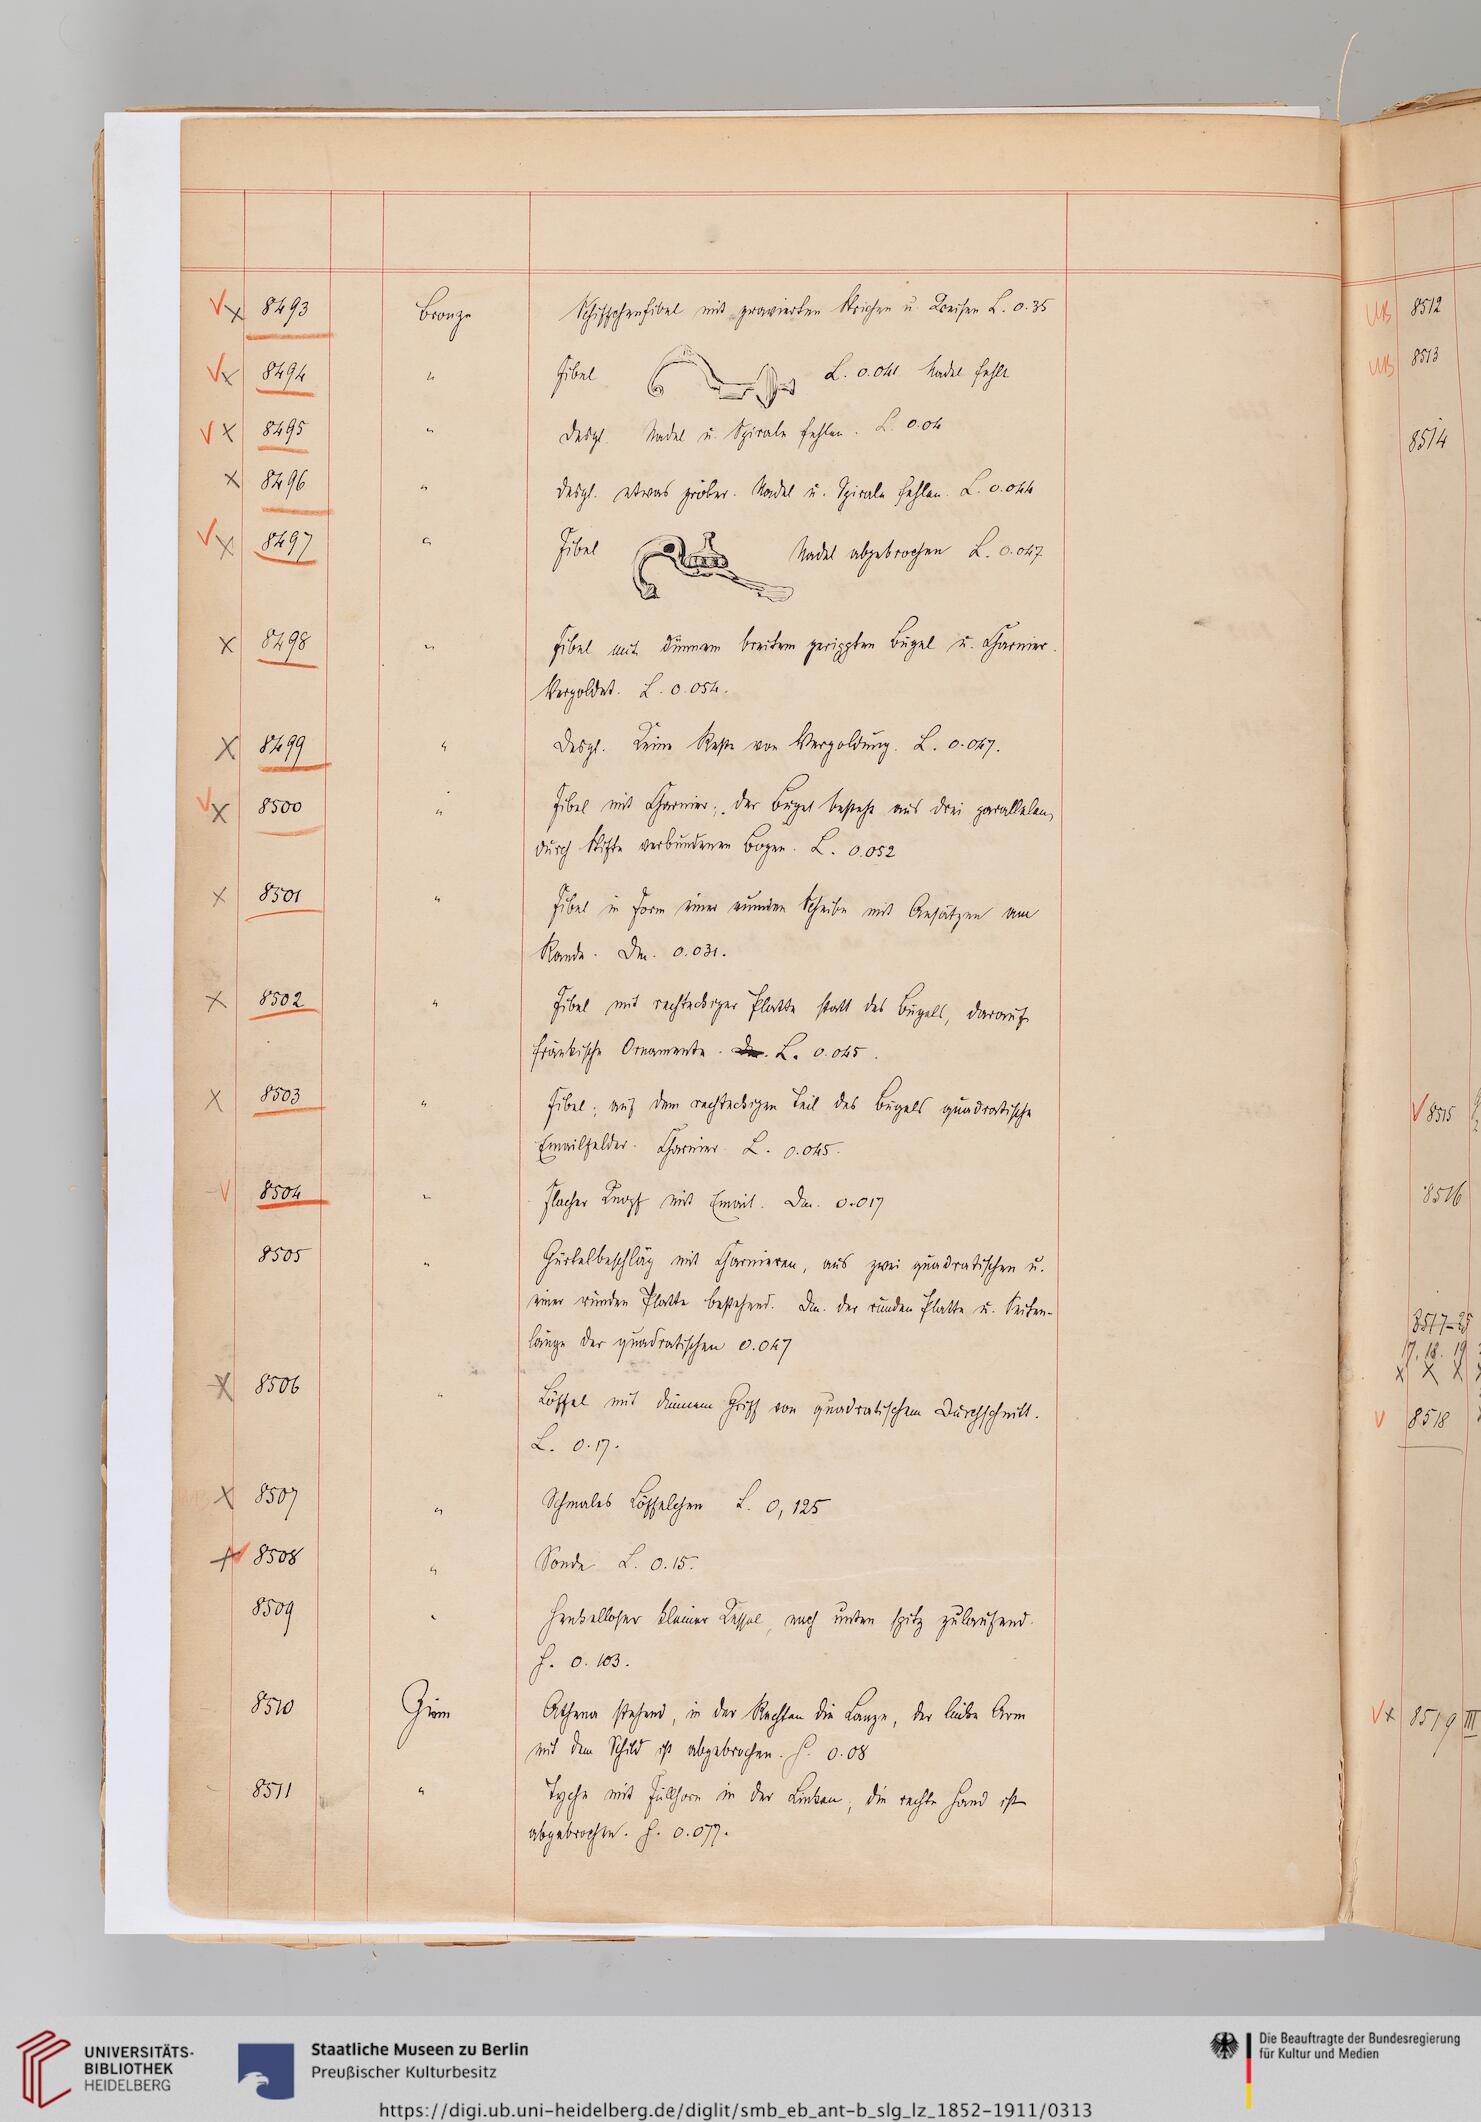 8493 Bronze Schiffchenfibel mit gravierten Strichen u. Kreisen L. 0.35
8494 " Fibel L. 0.041 Nadel fehlt
8495 " desgl. Nadel u. Spirale fehlen. L. 0.04
8496 " desgl. etwas gröber. Nadel u. Spirale fehlen. L. 0.044
8497 " Fibel Nadel abgebrochen L. 0.047
8498 " Fibel mit dünnem breitem gerippten Bügel u. Charnier.
Vergoldet. L. 0.054.
8499 " Desgl. Keine Reste von Vergoldung. L. 0.047.
8500 " Fibel mit Charnier; der Bügel besteht aus drei parallelen,
durch Stifte verbundenen Bogen. L. 0.052
8501 " Fibel in Form einer runden Scheibe mit Ansätzen am
Rande. Dm. 0.031.
8502 " Fibel mit rechteckiger Platte statt des Bügels, darauf
fränkische Ornamente. Dm. L. 0.045.
8503 " Fibel; auf dem rechteckigen Teil des Bügels quadratische
Emailfelder. Charnier L. 0.045.
8504 " Flacher Knopf mit Email. Dm. 0.017
8505 " Gürtelbeschläg mit Charnieren, aus zwei quadratischen u.
einer runden Platte bestehend. Dm. der runden Platte u. Seiten-
länge der quadratischen 0.047
8506 " Löffel mit dünnem Griff von quadratischem Durchschnitt.
L. 0.17.
8507 " Schmales Löffelchen L. 0,125
8508 " Sonde L. 0.15.
8509 " Henkelloser kleiner Kessel, nach unten spitz zulaufend.
H. 0.103.
8510 Zinn Athena stehend, in der Rechten die Lanze, der linke Arm
mit dem Schild ist abgebrochen. H. 0.08
8511 " Tyche mit Füllhorn in der Linken, die rechte Hand ist
abgebrochen. H. 0.077.
UB 8512
UB 8513
8514
8515
8516
8517-25
17. 18. 19
x x x
8518
8519 III
UNIVERSITÄTS-
BIBLIOTHEK
HEIDELBERG
Staatliche Museen zu Berlin
Preußischer Kulturbesitz
https://digi.ub.uni-heidelberg.de/diglit/smb_eb_ant-b_slg_lz_1852-1911/0313
Die Beauftragte der Bundesregierung
für Kultur und Medien